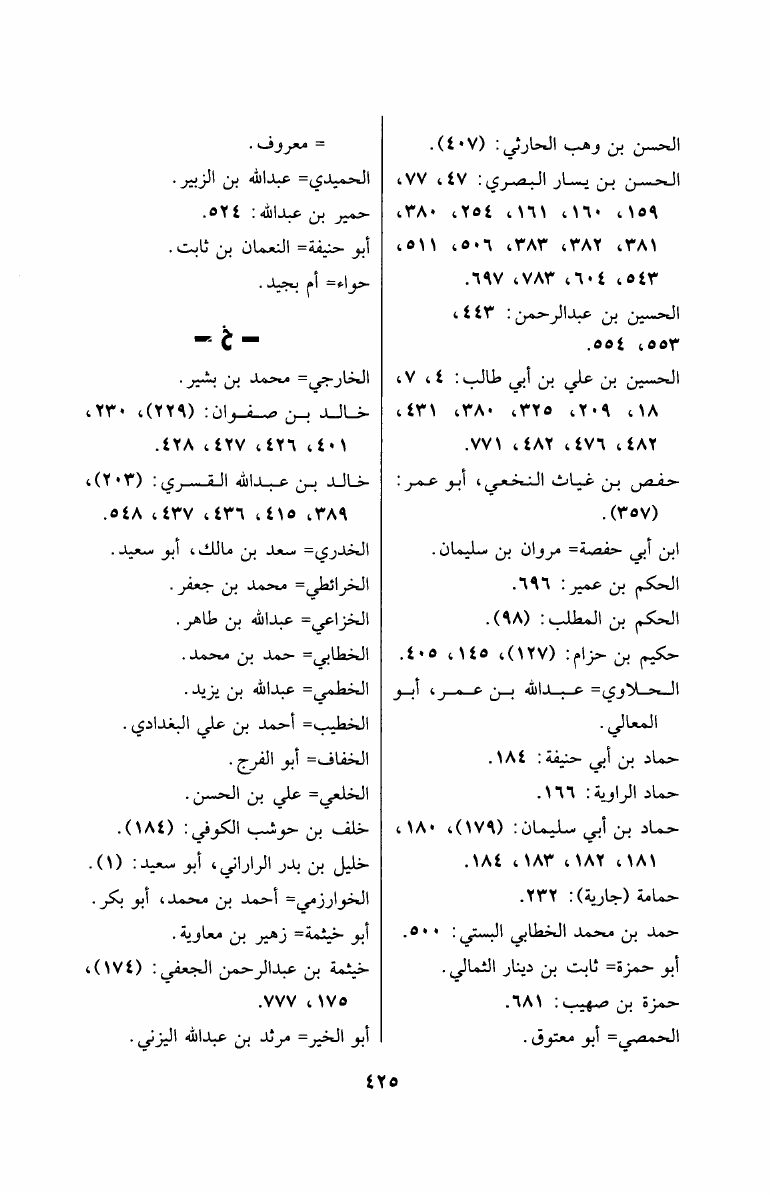 الحسن بن وهب الحارثي: (٤٠٧).
الحسن بن يسار البصري: ٤٧، ٧٧،
١٥٩، ١٦٠، ١٦١، ٢٥٤، ٣٨٠،
٣٨١، ٣٨٢، ٣٨٣، ٥٠٦، ٥١١،
٥٤٣، ٦٠٤، ٧٨٣، ٦٩٧.
الحسين بن عبدالرحمن: ٤٤٣،
٥٥٣، ٥٥٤.
الحسين بن علي بن أبي طالب: ٤، ٧،
١٨، ٢٠٩، ٣٢٥، ٣٨٠، ٤٣١،
٤٨٢، ٤٧٦، ٤٨٢، ٧٧١.
حفص بن غياث النخعي، أبو عمر:
(٣٥٧).
ابن أبي حفصة= مروان بن سليمان.
الحكم بن عمير: ٦٩٦.
الحكم بن المطلب: (٩٨).
حكيم بن حزام: (١٢٧)، ١٤٥، ٤٠٥.
الحلاوي= عبدالله بن عمر، أبو
المعالي.
حماد بن أبي حنيفة: ١٨٤.
حماد الراوية: ١٦٦.
حماد بن أبي سليمان: (١٧٩)، ١٨٠،
١٨١، ١٨٢، ١٨٣، ١٨٤.
حمامة (جارية): ٢٣٢.
حمد بن محمد الخطابي البستي: ٥٠٠.
أبو حمزة= ثابت بن دينار الثمالي.
حمزة بن صهيب: ٦٨١.
الحمصي= أبو معتوق.
= معروف.
الحميدي= عبدالله بن الزبير.
حمير بن عبدالله: ٥٢٤.
أبو حنيفة= النعمان بن ثابت.
حواء= أم بجيد.
- خ -
الخارجي= محمد بن بشير.
خالد بن صفوان: (٢٢٩)، ٢٣٠،
٤٠١، ٤٢٦، ٤٢٧، ٤٢٨.
خالد بن عبدالله القسري: (٢٠٣)،
٣٨٩، ٤١٥، ٤٣٦، ٤٣٧، ٥٤٨.
الخدري= سعد بن مالك، أبو سعيد.
الخرائطي= محمد بن جعفر.
الخزاعي= عبدالله بن طاهر.
الخطابي= حمد بن محمد.
الخطمي= عبدالله بن يزيد.
الخطيب= أحمد بن علي البغدادي.
الخفاف= أبو الفرج.
الخلعي= علي بن الحسن.
خلف بن حوشب الكوفي: (١٨٤).
خليل بن بدر الراراني، أبو سعيد: (١).
الخوارزمي= أحمد بن محمد، أبو بكر.
أبو خيثمة= زهير بن معاوية.
خيثمة بن عبدالرحمن الجعفي: (١٧٤)،
١٧٥، ٧٧٧.
أبو الخير= مرثد بن عبدالله اليزني.
٤٢٥